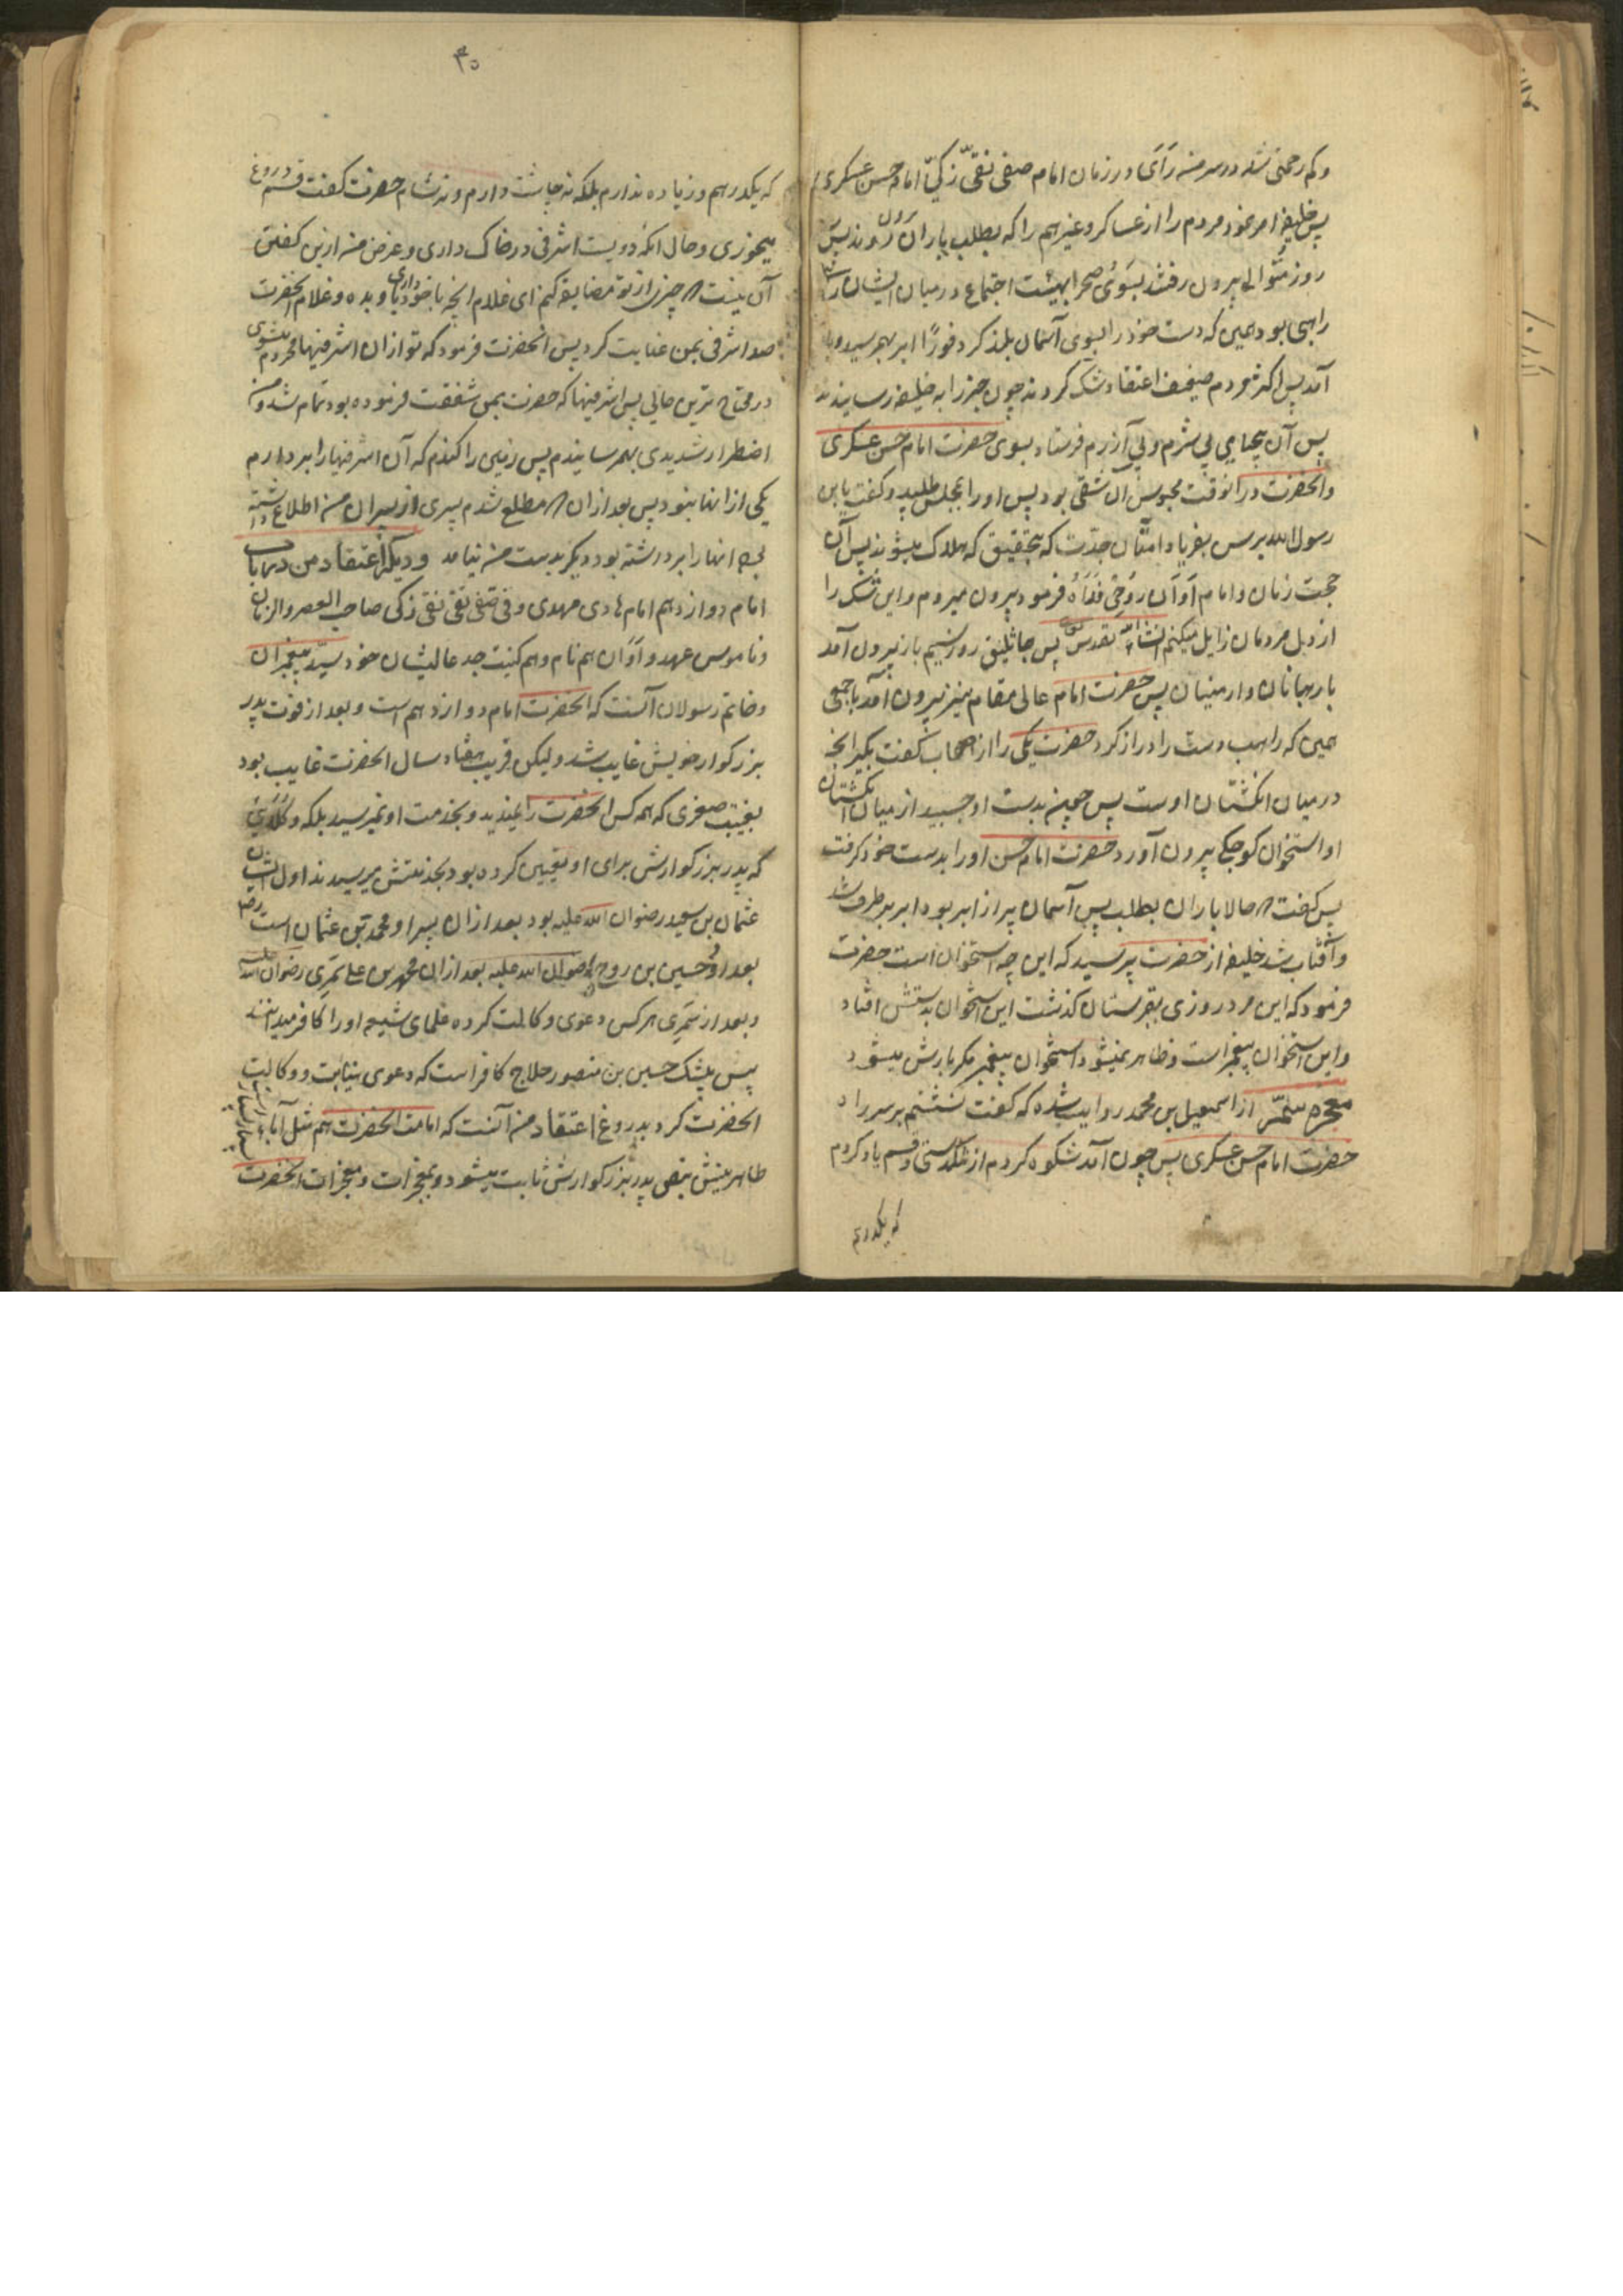 و کم رحمتی شد در سر من رآی در زمان امام صفی نقی زکی امام حسن عسکری
پس خلیفه امر نمود مردم را از عساکر و غیرهم را که بطلب باران روند پس
روز متوالی بیرون رفتند بسوی صحرا بهیئت اجتماع در میان ایشان
راهبی بود همین که دست خود را بسوی آسمان بلند کرد فورًا ابر بهم رسید و
آمد پس اکثر مردم ضعیف اعتقاد شک کردند چون خبر را به خلیفه رسانیدند
پس آن بیحیای بی شرم و بی آزرم فرستاد بسوی حضرت امام حسن عسکری
و آنحضرت در آنوقت محبوس آن شقی بود پس او را بمجلس طلبید و گفت یابن
رسول الله برس بفریاد امتان جدّت که بتحقیق که هلاک میشوند پس آن
حجت زمان و امام آوان روحی فداه فرمود بیرون میروم و این شک را
از دل مردمان زایل میکنم انشاء الله تعالی پس جاثلیق روز سیم باز بیرون آمد
با رهبانان و ارمنیان پس حضرت امام عالی مقام نیز بیرون آمد با جمعی
همین که راهب دست را دراز کرد حضرت یکی را از اصحاب گفت بگیر آنچه
در میان انگشتان اوست پس چون بدست او چسبید از میان انگشتان
او استخوان کوچکی بیرون آورد حضرت امام حسن او را بدست خود گرفت
پس گفت حالا باران بطلب پس آسمان پر از ابر بود ابر بر طرف شد
و آفتاب شد خلیفه از حضرت پرسید که این چه استخوان است حضرت
فرمود که این مرد روزی بقبرستان گذشت این استخوان بدستش افتاد
و این استخوان پیغمبر است و ظاهر نمیشود استخوان پیغمبر مگر بارش میشود
معجزه از اسمعیل بن محمد روایت شده که گفت نشستم بر سر راه
حضرت امام حسن عسکری پس چون آمد شکوه کردم از تنگدستی و قسم یاد کردم
که یکدرهم
۴۰
که یکدرهم و زیاده ندارم بلکه نه چاشت دارم و نه شام حضرت گفت قسم دروغ
میخوری و حال آنکه دویست اشرفی در خاک داری و غرض من ازین گفتن
آن نیست چیزی از تو مضایقه کنم ای غلام آنچه با خود داری بیاور بده و غلام آنحضرت
صد اشرفی بمن عنایت کرد پس آنحضرت فرمود که تو از آن اشرفیها محروم میشوی
در محتاج ترین حالی پس اشرفیها که حضرت بمن شفقت فرموده بود تمام شد و من
اضطرار شدیدی بهم رسانیدم پس زمینی را کندم که آن اشرفیها را بردارم
یکی از آنها نبود پس بعد از آن مطلع شدم پسری از پسران من اطلاع داشته
آنها را برداشته بود دیگر بدست من نیامد و دیگر اعتقاد من در باب
امام دوازدهم امام هادی مهدی وفی صفی نقی تقی زکی صاحب العصر و الزمان
و ناموس عهد و آوان هم نام و هم کنیت جد عالیشان خود سیّد پیغمبران
و خاتم رسولان آنست که آنحضرت امام دوازدهم است و بعد از فوت پدر
بزرگوار خویش غایب شد و لیکن قریب هفتاد سال آنحضرت غایب بود
بغیبت صغری که همه کس آنحضرت را نمیدید و بخدمت او نمیرسید بلکه وکلای
که پدر بزرگوارش برای او تعیین کرده بود بخدمتش میرسیدند اول ایشان
عثمان بن سعید رضوان الله علیه بود بعد از آن پسر او محمد بن عثمان است
بعد از او حسین بن روح رضوان الله علیه بعد از آن محمد بن علی سَمُرِی رضوان الله علیه
و بعد از سَمُرِی هر کس دعوی وکالت کرده علمای شیعه او را کافر میدانند
پس بیشک حسین بن منصور حلاج کافر است که دعوی نیابت و وکالت
آنحضرت کرد بدروغ اعتقاد من آنست که امامت آنحضرت هم مثل آباء
طاهرینش بنص پدر بزرگوارش ثابت میشود و بمعجزات و معجزات آنحضرت